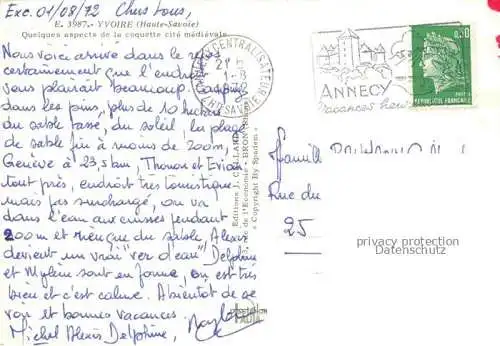 Exc. 01/08/72 Chers tous,
E. 3987. - YVOIRE (Haute-Savoie)
Quelques aspects de la coquette cité médiévale
Nous voici arrivé dans le repos
certainement que l'endroit
vous plairait beaucoup. Camping
dans les pins, plus de 10 hectares
du sable tassé, du soleil, la plage
de sable fin à moins de 200m,
Genève à 23,5 km, Thonon et Evian
tout près, endroit très touristique
mais pas surchargé, on va
dans l'eau aux cuisses pendant
200m et rien que du sable. Alexis
devient un vrai "ver d'eau" Delphine
et Mylène sont en forme, on est très
bien et c'est calme. A bientôt de se
voir et bonnes vacances.
Michel Alexis Delphine,
CENTRALISATEUR
HTE SAVOIE
Editions J. CELLARD
Rue de l'Economie - BRON (Rhône)
« Copyright By Spadem »
ANNECY
0,30
REPUBLIQUE FRANCAISE
Famille
Rue du
25
privacy protection
Datenschutz